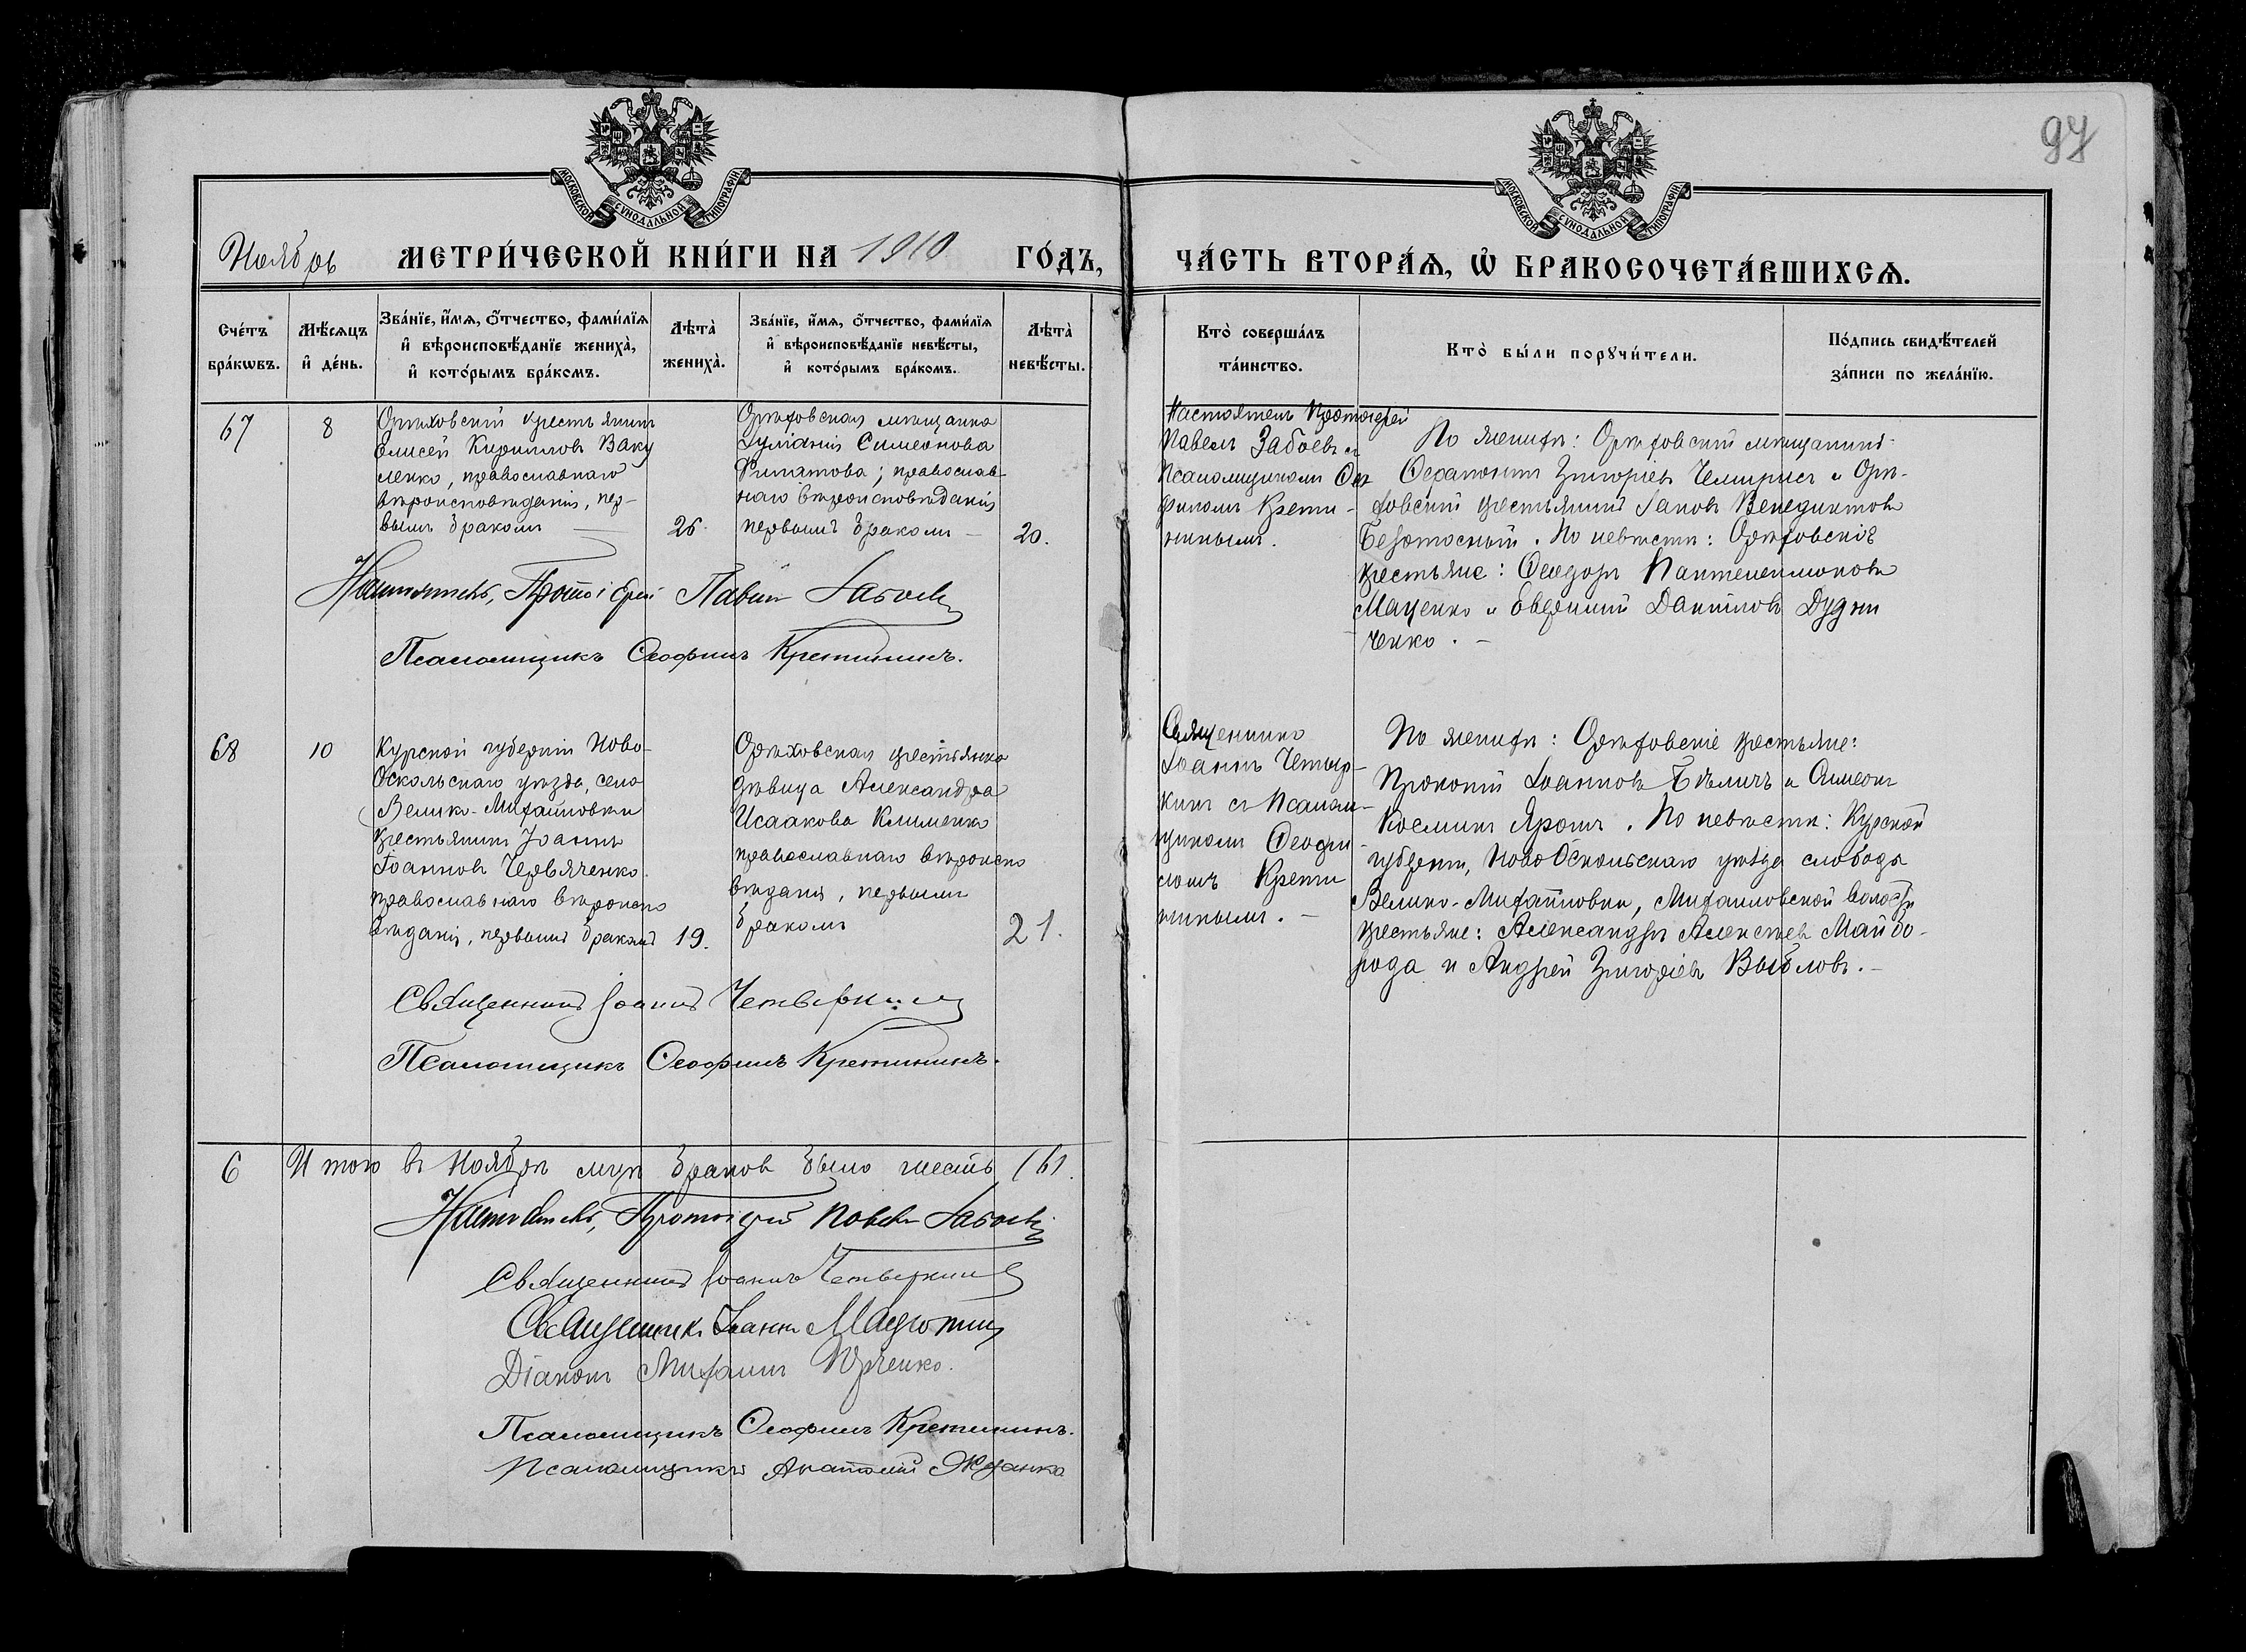 97
МОСКОВСКОЙ СУНОДАЛЬНОЙ ТИПОГРАФІИ
МОСКОВСКОЙ СУНОДАЛЬНОЙ ТИПОГРАФІИ
Ноябрь МЕТРИ́ЧЕСКОЙ КНИ́ГИ НА 1910 ГО́ДЪ,
ЧА́СТЬ ВТОРА́Ѧ, Ѽ БРАКОСОЧЕТА́ВШИХСѦ.
Сче́тъ бра́кѡвъ.
Мѣ́сяцъ и҆ де́нь.
Зва́нїе, и҆́мѧ, ѻ҆́тчество, фами́лїѧ
и҆ вѣроисповѣ́данїе жениха̀,
и҆ кото́рымъ бра́комъ.
Лѣта̀ жениха̀.
Зва́нїе, и҆́мѧ, ѻ҆́тчество, фами́лїѧ
и҆ вѣроисповѣ́данїе невѣ́сты,
и҆ кото́рымъ бра́комъ.
Лѣта̀ невѣ́сты.
Кто̀ соверша́лъ та́инство.
Кто̀ бы́ли порꙋчи́тели.
По́дпись свидѣ́телей
за́писи по жела́нїю.
67
8
Орѣховскій крестьянинъ
Елисей Кирилловъ Ваку
ленко, православнаго
вѣроисповѣданія, пер-
вымъ бракомъ
26.
Орѣховская мѣщанка
Іуліанія Симеонова
Филатова; православ-
наго вѣроисповѣданія
первымъ бракомъ —
20.
Настоятель Протоіерей
Павелъ Забоевъ съ
Псаломщикомъ Ѳео
филомъ Крети-
нинымъ.
По женихѣ: Орѣховскій мѣщанинъ
Григоріевъ и Орѣ-
ховскій крестьянинъ Іаковъ Венедиктовъ
. По невѣстѣ: Орѣховскіе
крестьяне: Ѳеодоръ Пантелеимоновъ
Маценко и Евфимій Даніиловъ Дудни
ченко. —
Настоятель, Протоіерей Павелъ Забоевъ
Псаломщикъ Ѳеофилъ Кретининъ.
68
10
Курской губерніи Ново-
Оскольскаго уѣзда, села
Велико-Михайловки
крестьянинъ Іоаннъ
Іоанновъ Червяченко
православнаго вѣроиспо
вѣданія, первымъ бракомъ
19.
Орѣховская крестьянка
дѣвица Александра
Исаакова Клименко
православнаго вѣроиспо
вѣданія, первымъ
бракомъ
21.
Священникъ
Іоаннъ Четвер-
кинъ съ Псалом-
щикомъ Ѳеофи-
ломъ Крети
нинымъ. —
По женихѣ: Орѣховскіе крестьяне:
Прокопій Іоанновъ Бѣличъ и Симеонъ
Косминъ Ярошъ. По невѣстѣ: Курской
губерніи, Ново Оскольскаго уѣзда слободы
Велико-Михайловки, Михайловской волости
крестьяне: Александръ Алексѣевъ Майбо-
рода и Андрей Григоріевъ
Священникъ Іоаннъ Четверкинъ
Псаломщикъ Ѳеофилъ Кретининъ.
6
Итого въ Ноябрѣ мцѣ браковъ было шесть (6).
Настоятель, Протоіерей Павелъ Забоевъ
Священникъ Іоаннъ Четверкинъ
Священникъ Іоаннъ
Діаконъ Михаилъ Юрченко.
Псаломщикъ Ѳеофилъ Кретининъ.
Псаломщикъ Анатолій